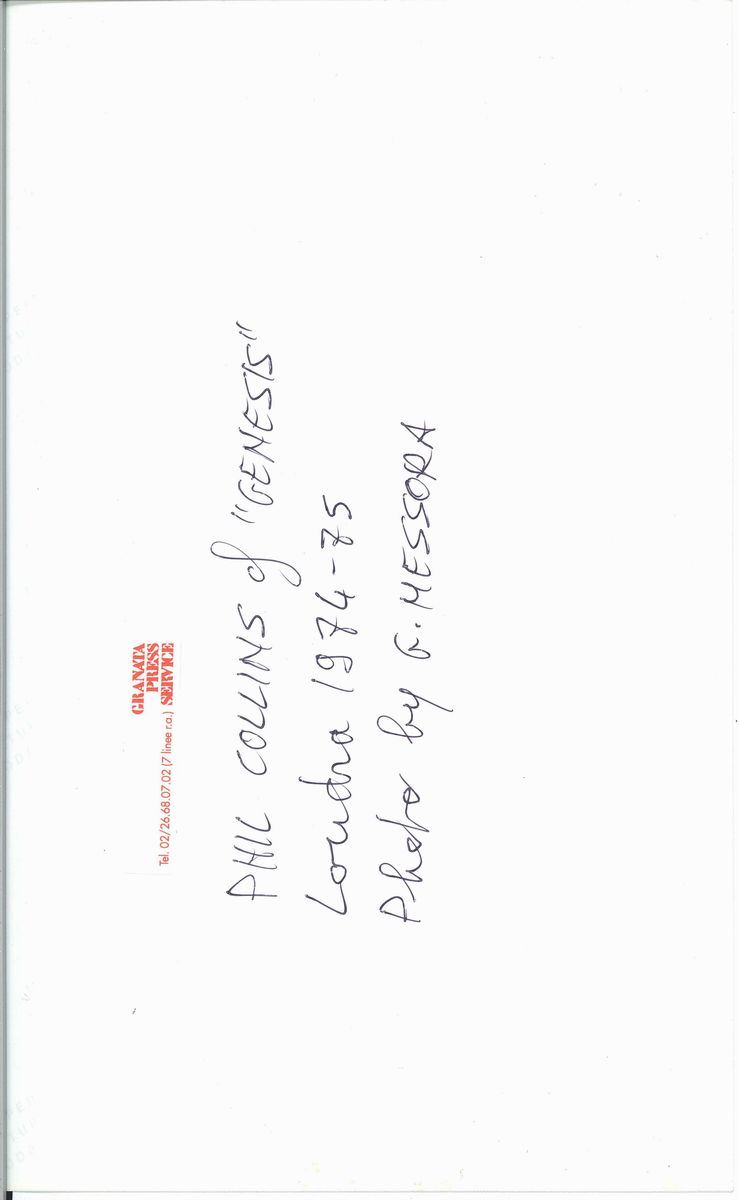 GRANATA
PRESS
Tel. 02/26.68.07.02 (7 linee r.a.) SERVICE
PHIL COLLINS of "GENESIS"
Londra 1974-75
Photo by G. MESSORA